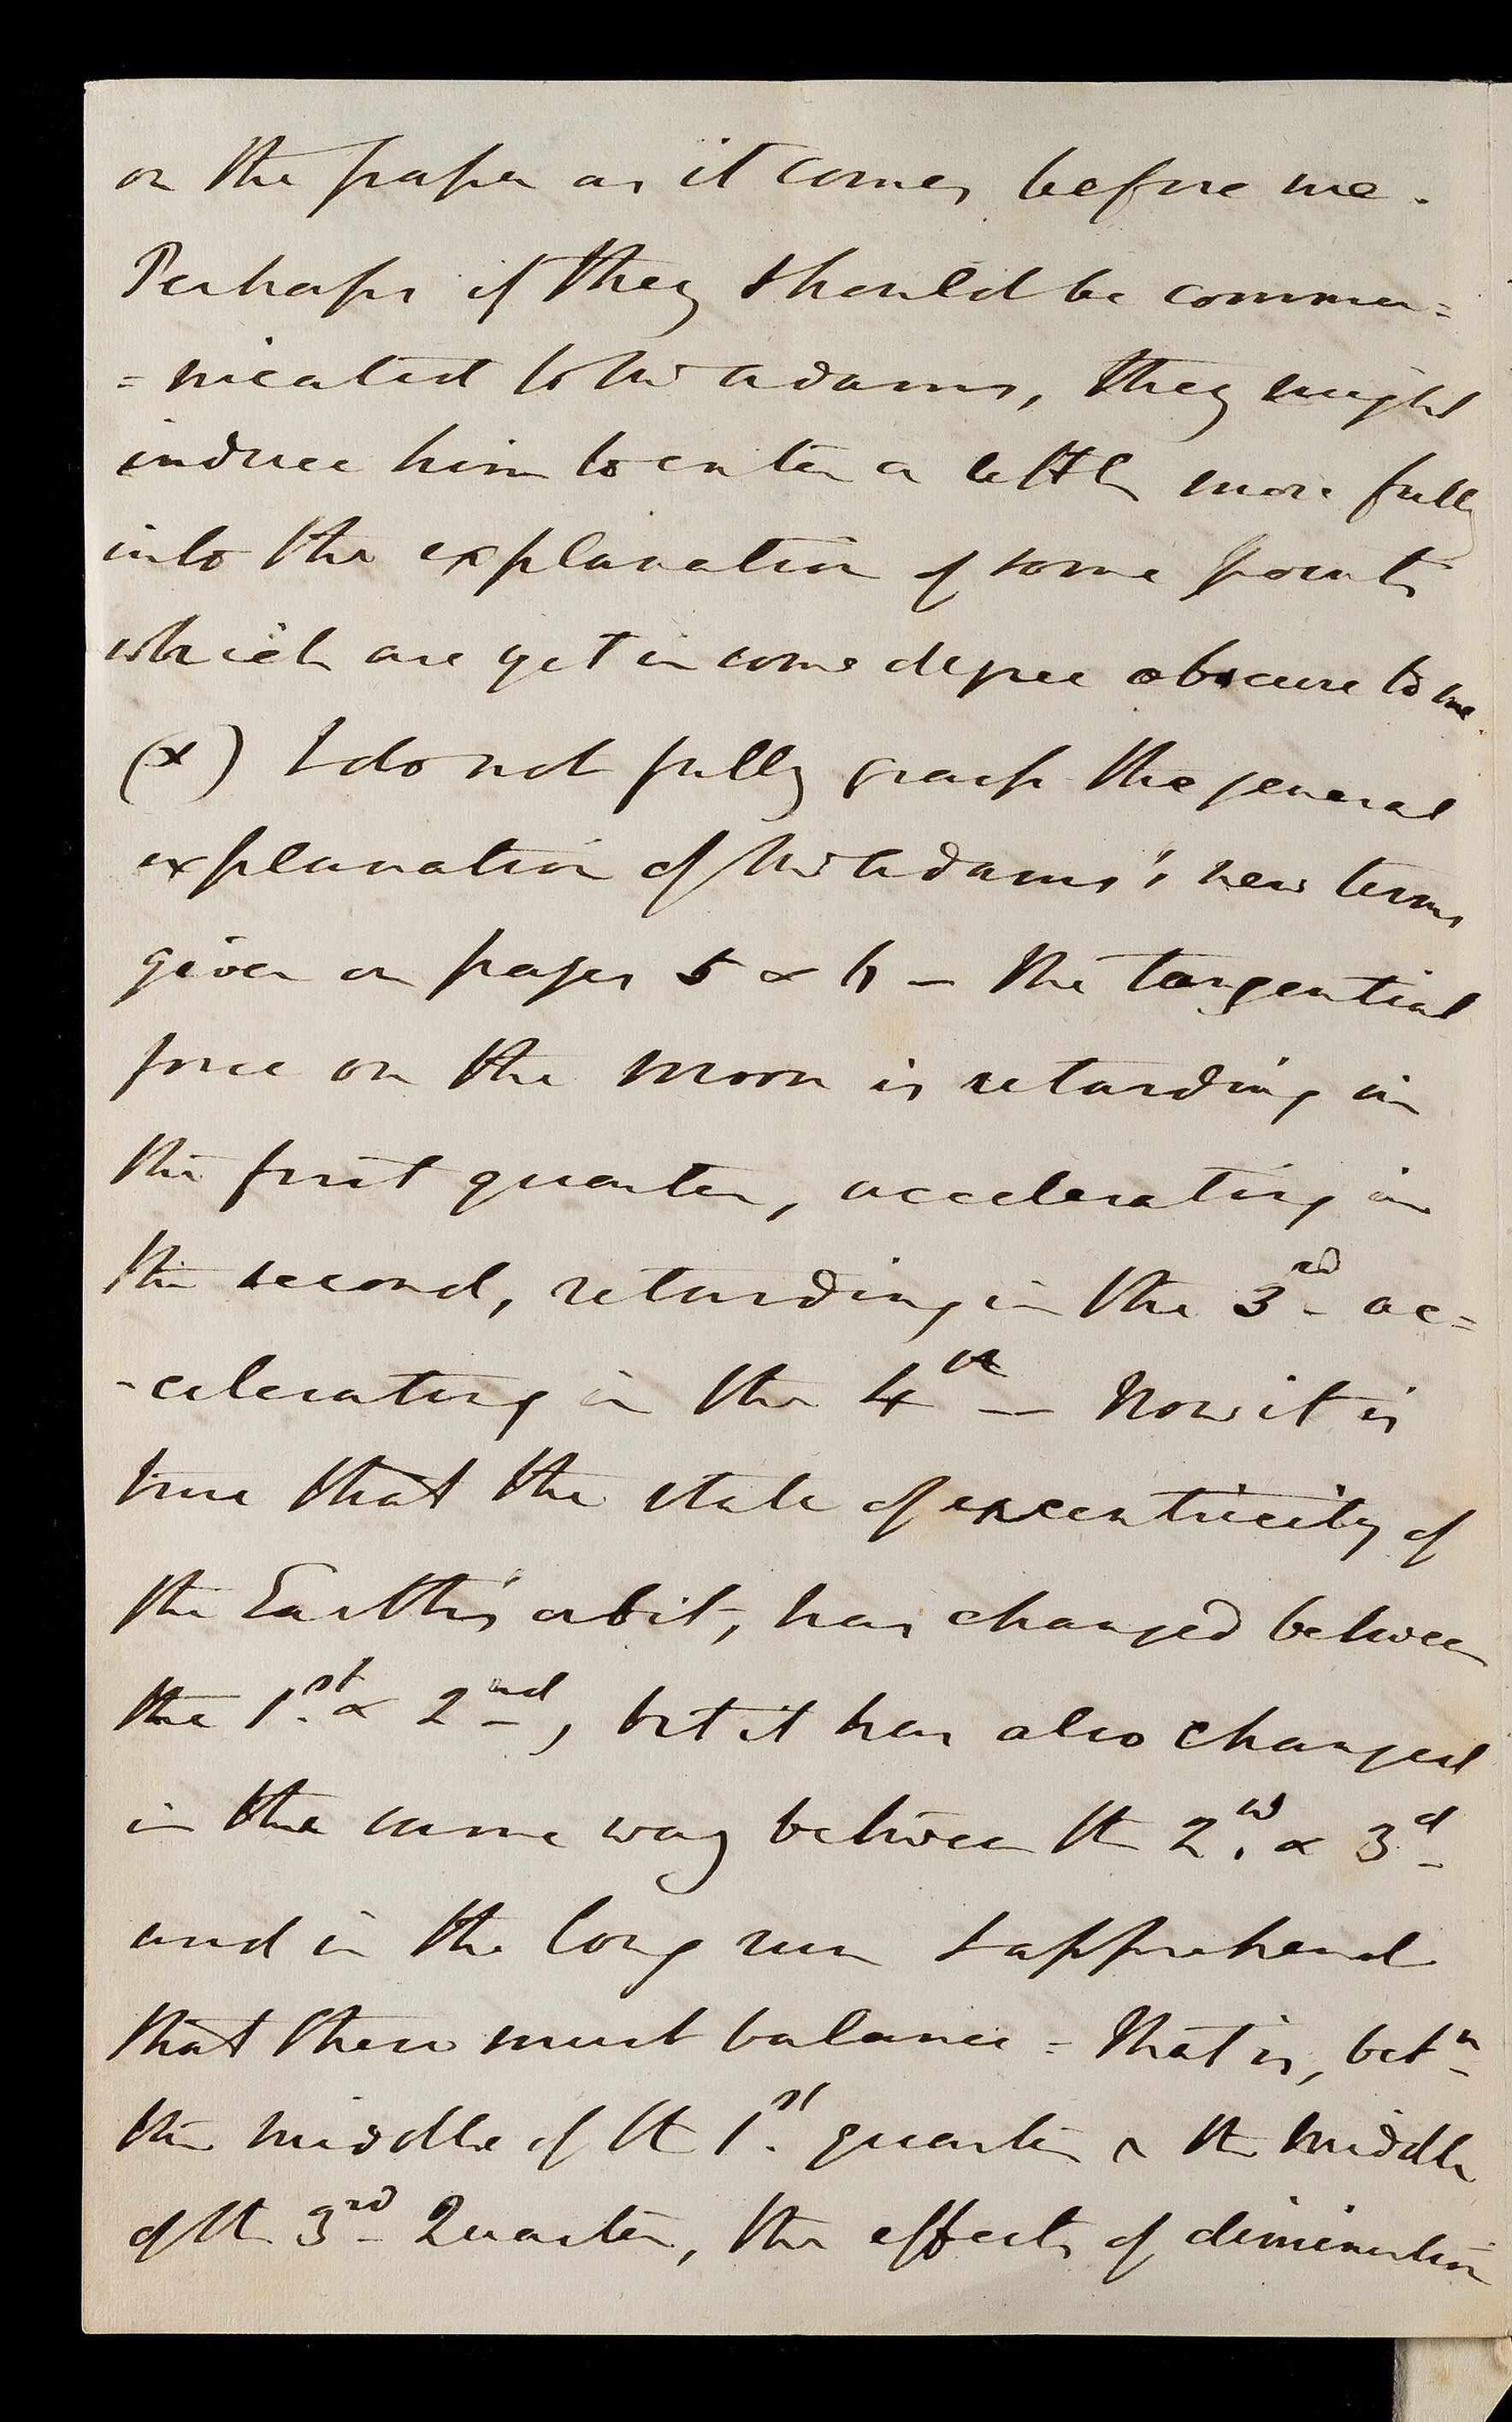 on the paper as it comes before me.
Perhaps if they should be commu=
=nicated to Mr Adams, they might
induce him to enter a little more fully
into the explanation of some points
which are yet in some degree obscure to me.
(x) I do not fully grasp the general
explanation of Mr Adams's new terms
given on pages 5 & 6 – The tangential
force on the Moon is retarding in
the first quarter, accelerating in
the second, retarding in the 3rd ac=
-celerating in the 4th — Now it is
true that the state of excentricity of
the Earth's orbit, has changed between
the 1st & 2nd, but it has also changed
in the same way between the 2nd & 3d
and in the long run I apprehend
that these must balance = That is, betn
the middle of the 1st quarter & the middle
of the 3rd Quarter, the effects of diminution